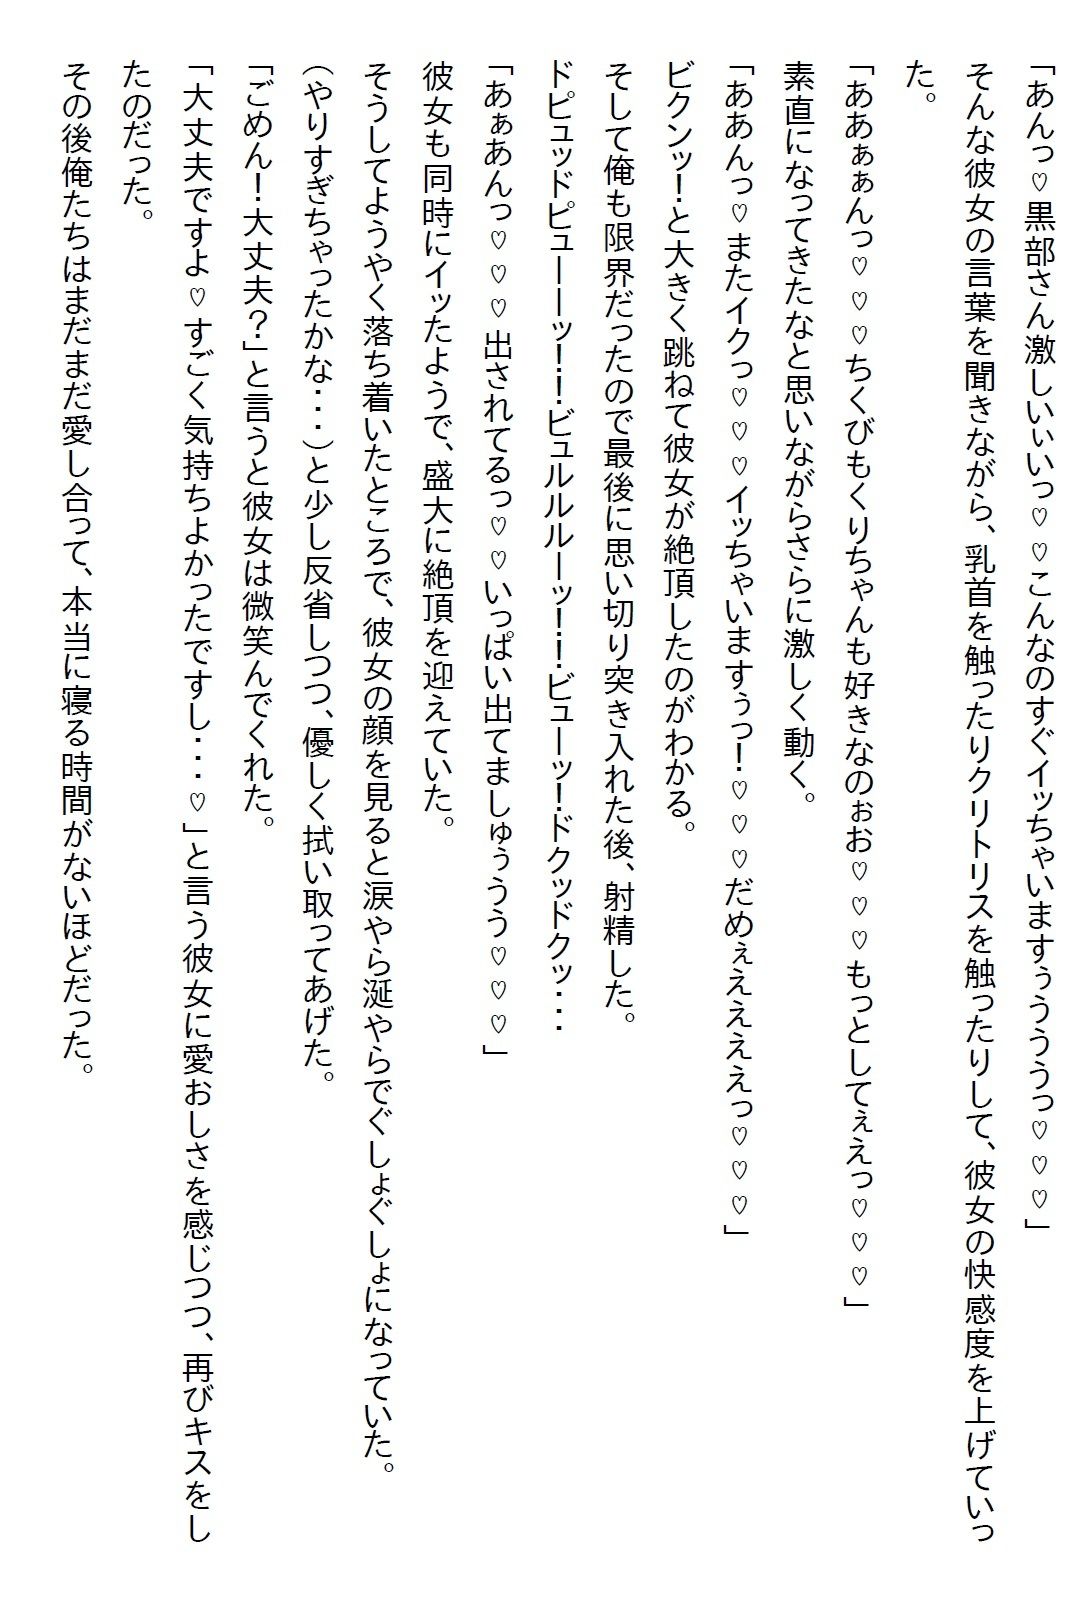 「あんっ♡黒部さん激しいぃいっ♡♡こんなのすぐイッちゃいますぅうううっ♡♡♡」
そんな彼女の言葉を聞きながら、乳首を触ったりクリトリスを触ったりして、彼女の快感度を上げていっ
た。
「ああぁぁんっ♡♡♡ちくびもくりちゃんも好きなのぉお♡♡♡もっとしてぇえっ♡♡♡」
素直になってきたなと思いながらさらに激しく動く。
「ああんっ♡またイクっ♡♡♡イッちゃいますぅっ！♡♡♡だめぇええええっ♡♡♡」
ビクンッ！と大きく跳ねて彼女が絶頂したのがわかる。
そして俺も限界だったので最後に思い切り突き入れた後、射精した。
ドピュッドピューーーッ！！ビュルルルーッ！！ビューッ！ドクッドクッ・・・
「あぁあんっ♡♡♡出されてるっ♡♡いっぱい出てましゅぅうう♡♡♡」
彼女も同時にイッたようで、盛大に絶頂を迎えていた。
そうしてようやく落ち着いたところで、彼女の顔を見ると涙やら涎やらでぐしょぐしょになっていた。
（やりすぎちゃったかな・・・）と少し反省しつつ、優しく拭い取ってあげた。
「ごめん！大丈夫？」と言うと彼女は微笑んでくれた。
「大丈夫ですよ♡すごく気持ちよかったですし・・・♡」と言う彼女に愛おしさを感じつつ、再びキスをし
たのだった。
その後俺たちはまだまだ愛し合って、本当に寝る時間がないほどだった。